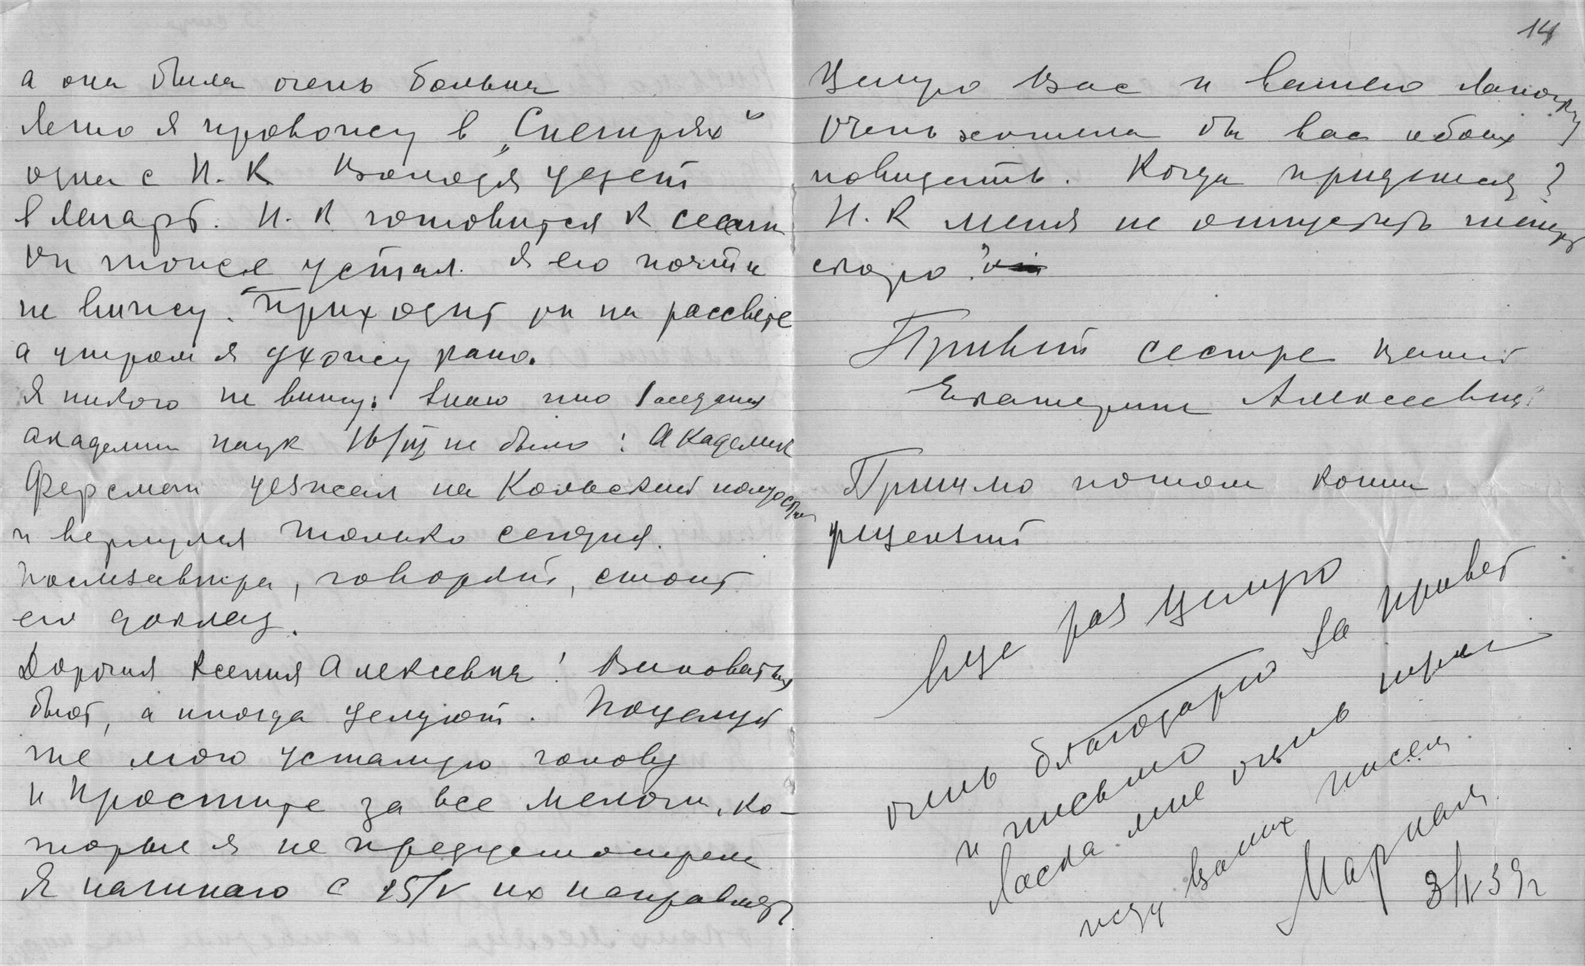 а она была очень больна
Лето я провожу в „Снегирях"
одна с Н. К Володя уедет
в лагерь. Н. К готовится к сессии
он тоже устал. Я его почти
не вижу. Приходит он на рассвете
а утром я ухожу рано.
Я никого не вижу. Знаю что заседания
академии наук 16/III не было: Академик
Ферсман уезжал на Кольский полуостров
и вернулся только сегодня.
Послезавтра, говорят, стоит
его доклад.
Дорогая Ксения Алексевна! Виноватых
бьют, а иногда целуют. Поцелуй
же мою усталую голову
и простите за все мелочи, ко-
торые я не предусмотрела
Я начинаю с 15/V их исправлять
14
Целую Вас и вашего
Очень хотела бы вас обоих
повидать. Когда придется?
Н. К меня не отпустит теперь
скоро.
Привет сестре вашей
Екатерине Алексевне
Пришлю потом копии
рецензий
Еще раз целую
очень благодарю за привет
и письмо
Ласка мне очень нужна
жду Ваших писем
Мариам
39г